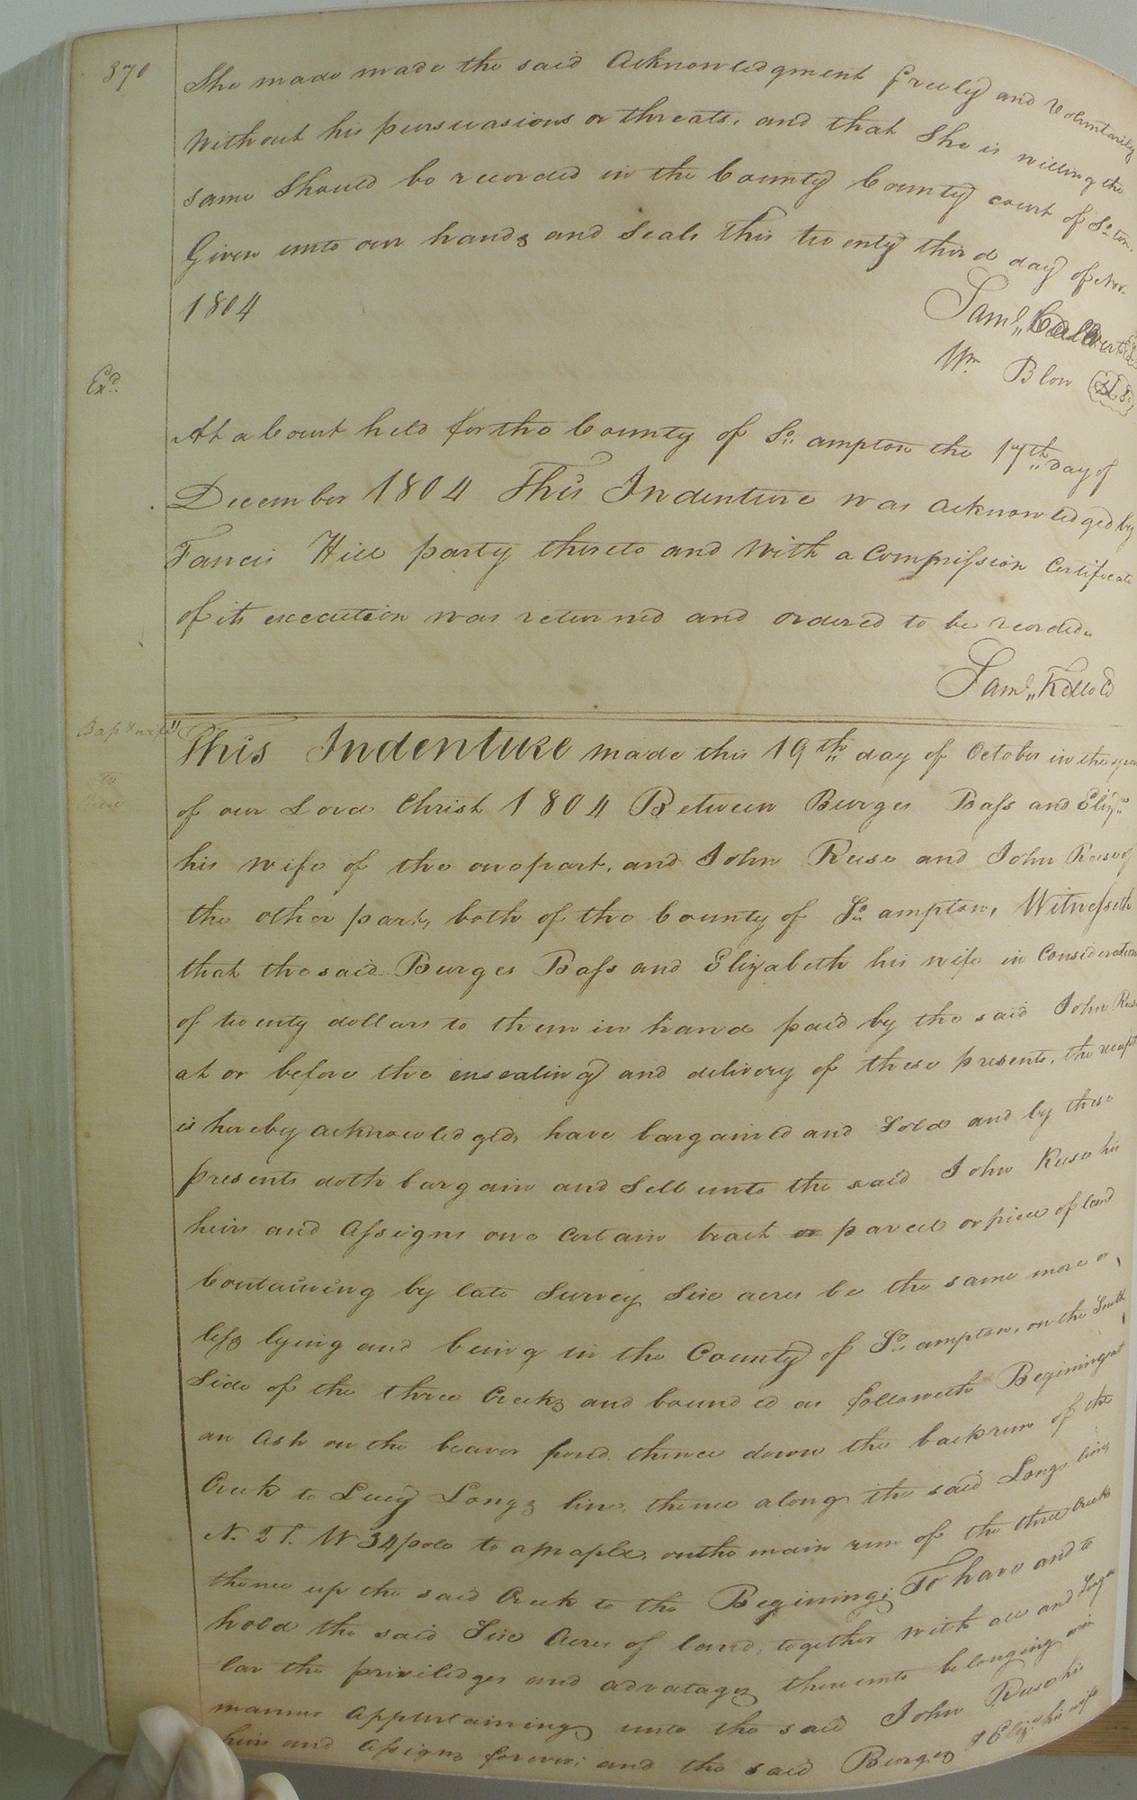 370
She made made the said Acknowledgment freely and Voluntarily
Without his perswasions or threats, and that She is willing the
same Should be recorded in the County County court of So. ton.
Given unto our hands and Seals this twenty third day of Nov.
1804
Saml. Calvert
Wm Blow LS.
Exd.
At a Court held for the County of So. ampton the 17th day of
December 1804 This Indenture was acknowledged by
Fancis Hill party thereto and With a Commission Certificate
of its execution was returned and ordered to be recorded.
Saml. Kello Cl
Bass & wife
to
This Indenture made this 19th day of October in the year
of our Lord Christ 1804 Between Burges Bass and Eliza.
his wife of the one part, and John Reese and John Reese of
the other part, both of the County of So. ampton, Witnesseth
that the said Burges Bass and Elizabeth his wife in Consideration
of twenty dollars to them in hand paid by the said John Reese
at or before the ensealing and delivery of these presents, the receipt
is hereby acknowledged, have bargained and Sold and by these
presents doth bargain and Sell unto the said John Reese his
heirs and Assigns one certain tract or parcel or piece of land
Containing by late Survey Six acres be the same more or
less lying and being in the County of So. ampton, on the South
Side of the three Creeks and bounded as followeth Begining at
an Ash on the beaver pond thence down the back run of the
Creek to Lucy Longs line, thence along the said Longs line
N. 21. W 34 pole to a maple, on the main run of the three Creeks
thence up the said Creek to the Begining; To have and to
hold the said Six Acres of land, together with all and Singu
lar the priviledges and advatages thereunto belonging or in
manner appurtaining unto the said John Reese his
heirs and Assigns forever; and the said Burges & Eliza. his wife